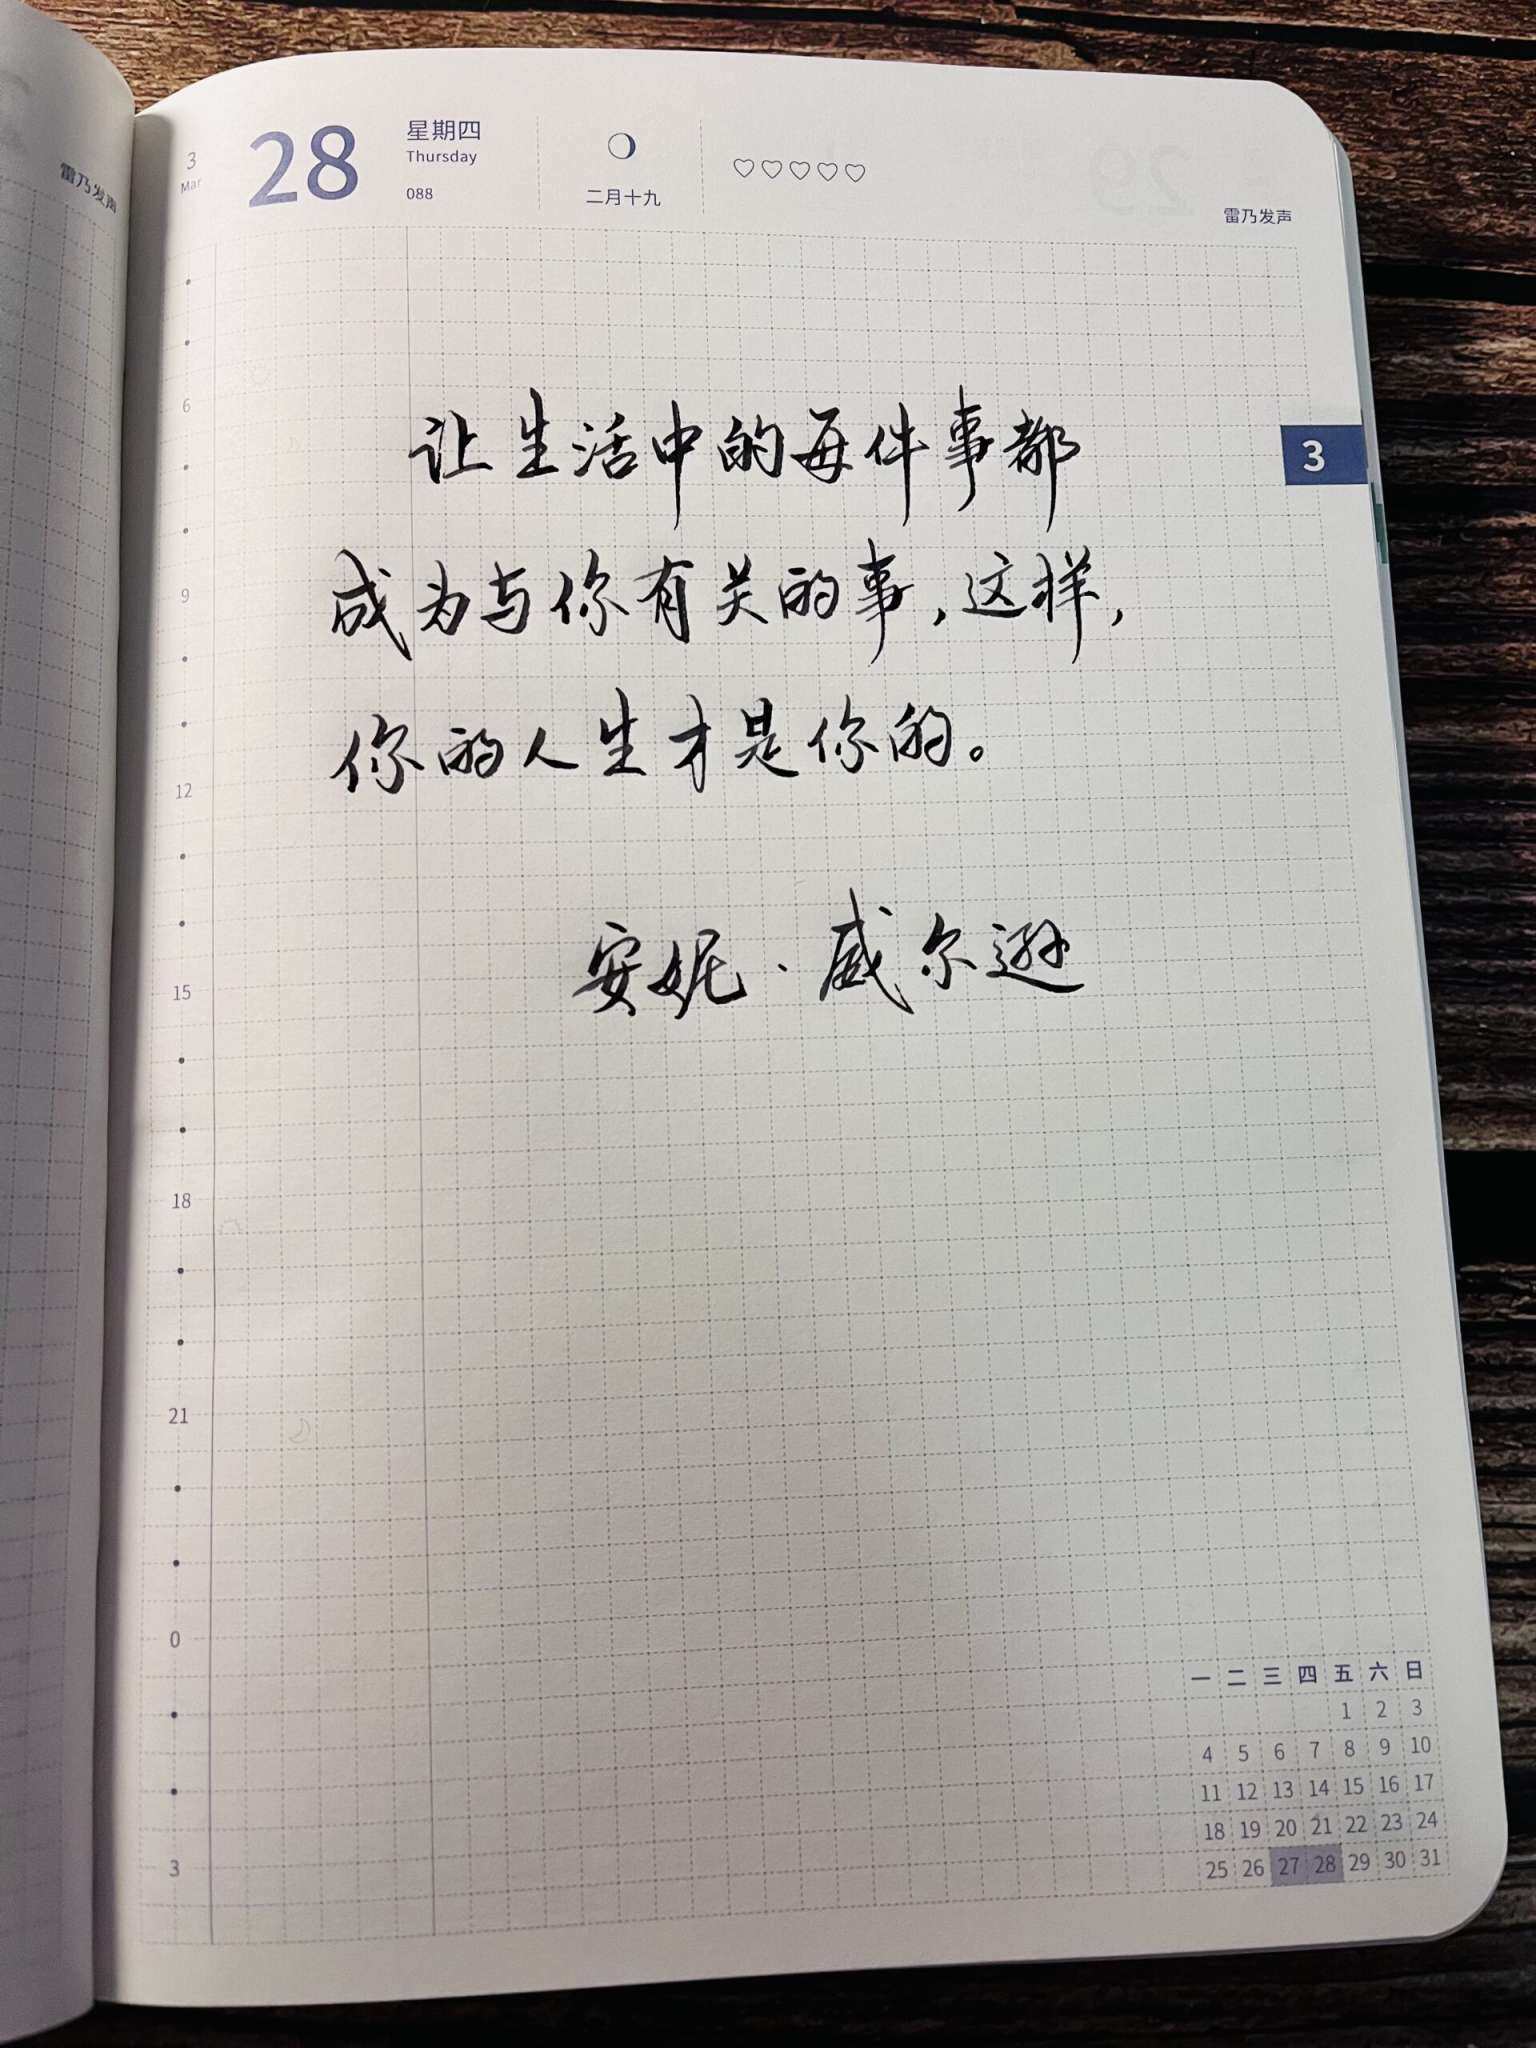 雷乃发声
3
Mar
28
星期四
Thursday
088
二月十九
雷乃发声
3
6
9
12
15
18
21
0
3
让生活中的每件事都
成为与你有关的事,这样,
你的人生才是你的。
安妮·威尔逊
一 二 三 四 五 六 日
1 2 3
4 5 6 7 8 9 10
11 12 13 14 15 16 17
18 19 20 21 22 23 24
25 26 27 28 29 30 31